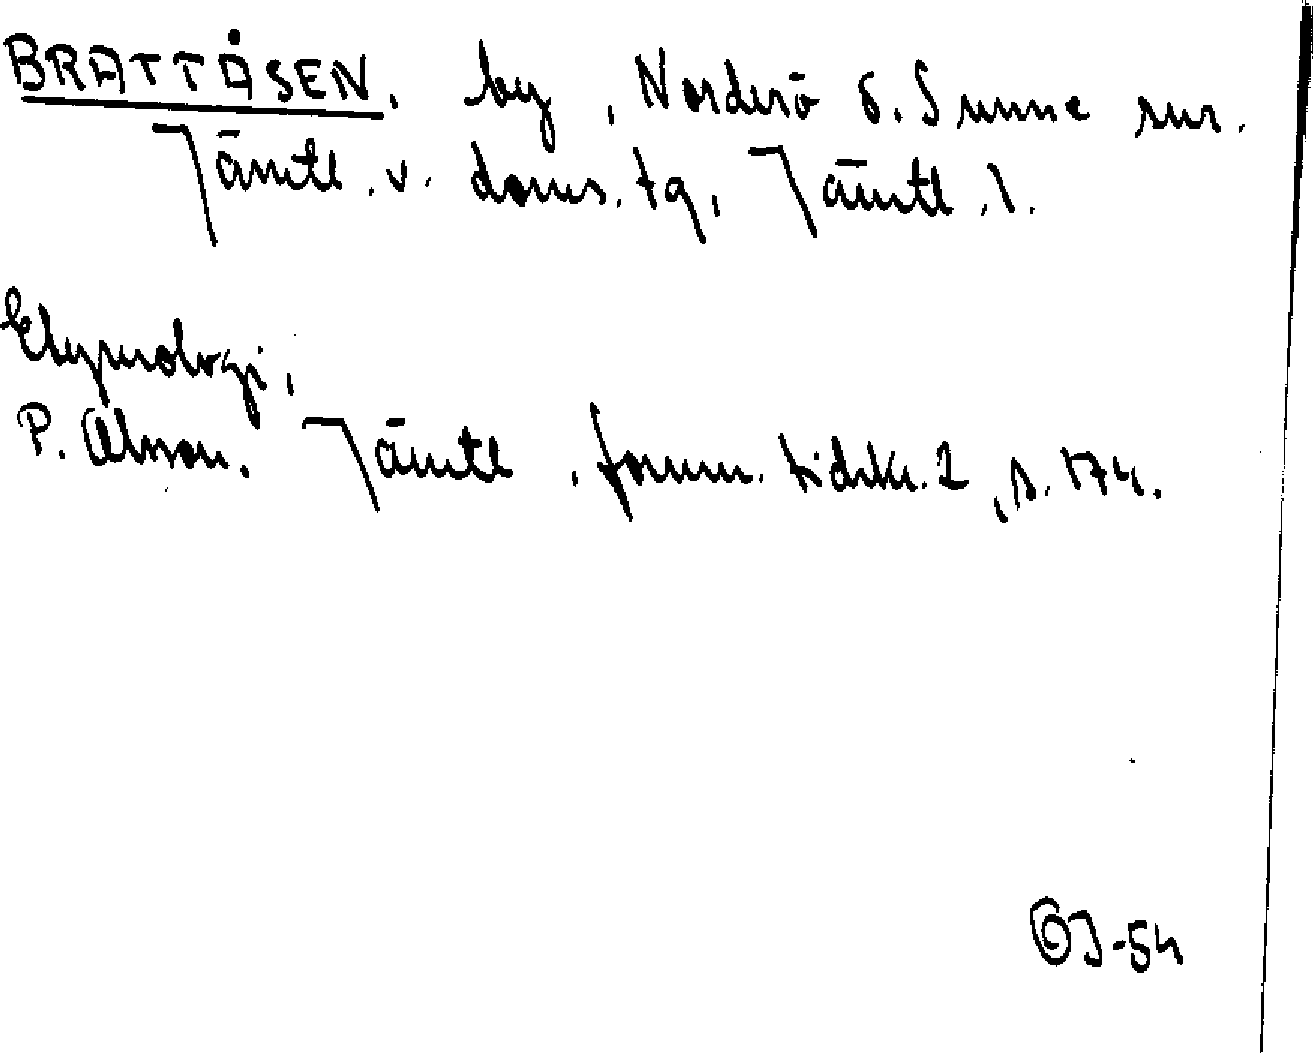 BRATTÅSEN, by, Norderö s. Sunne
Jämtl. v. doms. tg, Jämtl. l.
Etymologi,
P. Olsson, Jämtl. fornm. tidskr. 2, s. 174.
OJ-54